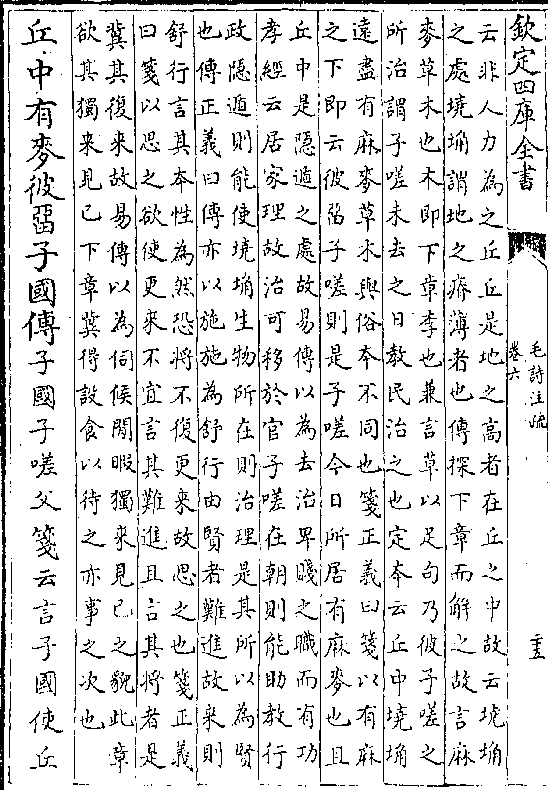 欽定四庫全書
毛詩注疏
卷六
云非人力為之丘丘是地之高者在丘之中故云墝埆
之處墝埆謂地之瘠薄者也傳探下章而解之故言麻
麥草木也木即下章李也兼言草以足句乃彼子嗟之
所治謂子嗟未去之日教民治之也定本云丘中墝埆
遠盡有麻麥草木與俗本不同也箋正義曰箋以有麻
之下即云彼留子嗟則是子嗟今日所居有麻麥也且
丘中是隱遁之處故易傳以為去治卑賤之職而有功
孝經云居家理故治可移於官子嗟在朝則能助教行
政隱遁則能使墝埆生物所在則治理是其所以為賢
也傳正義曰傳亦以施施為舒行由賢者難進故來則
舒行言其本性為然恐將不復更來故思之也箋正義
曰箋以思之欲使更來不宜言其難進且言其將者是
冀其復來故易傳以為伺候間暇獨來見已之貌此章
欲其獨來見已下章冀得設食以待之亦事之次也
丘中有麥彼畱子國傳子國子嗟父箋云言子國使丘